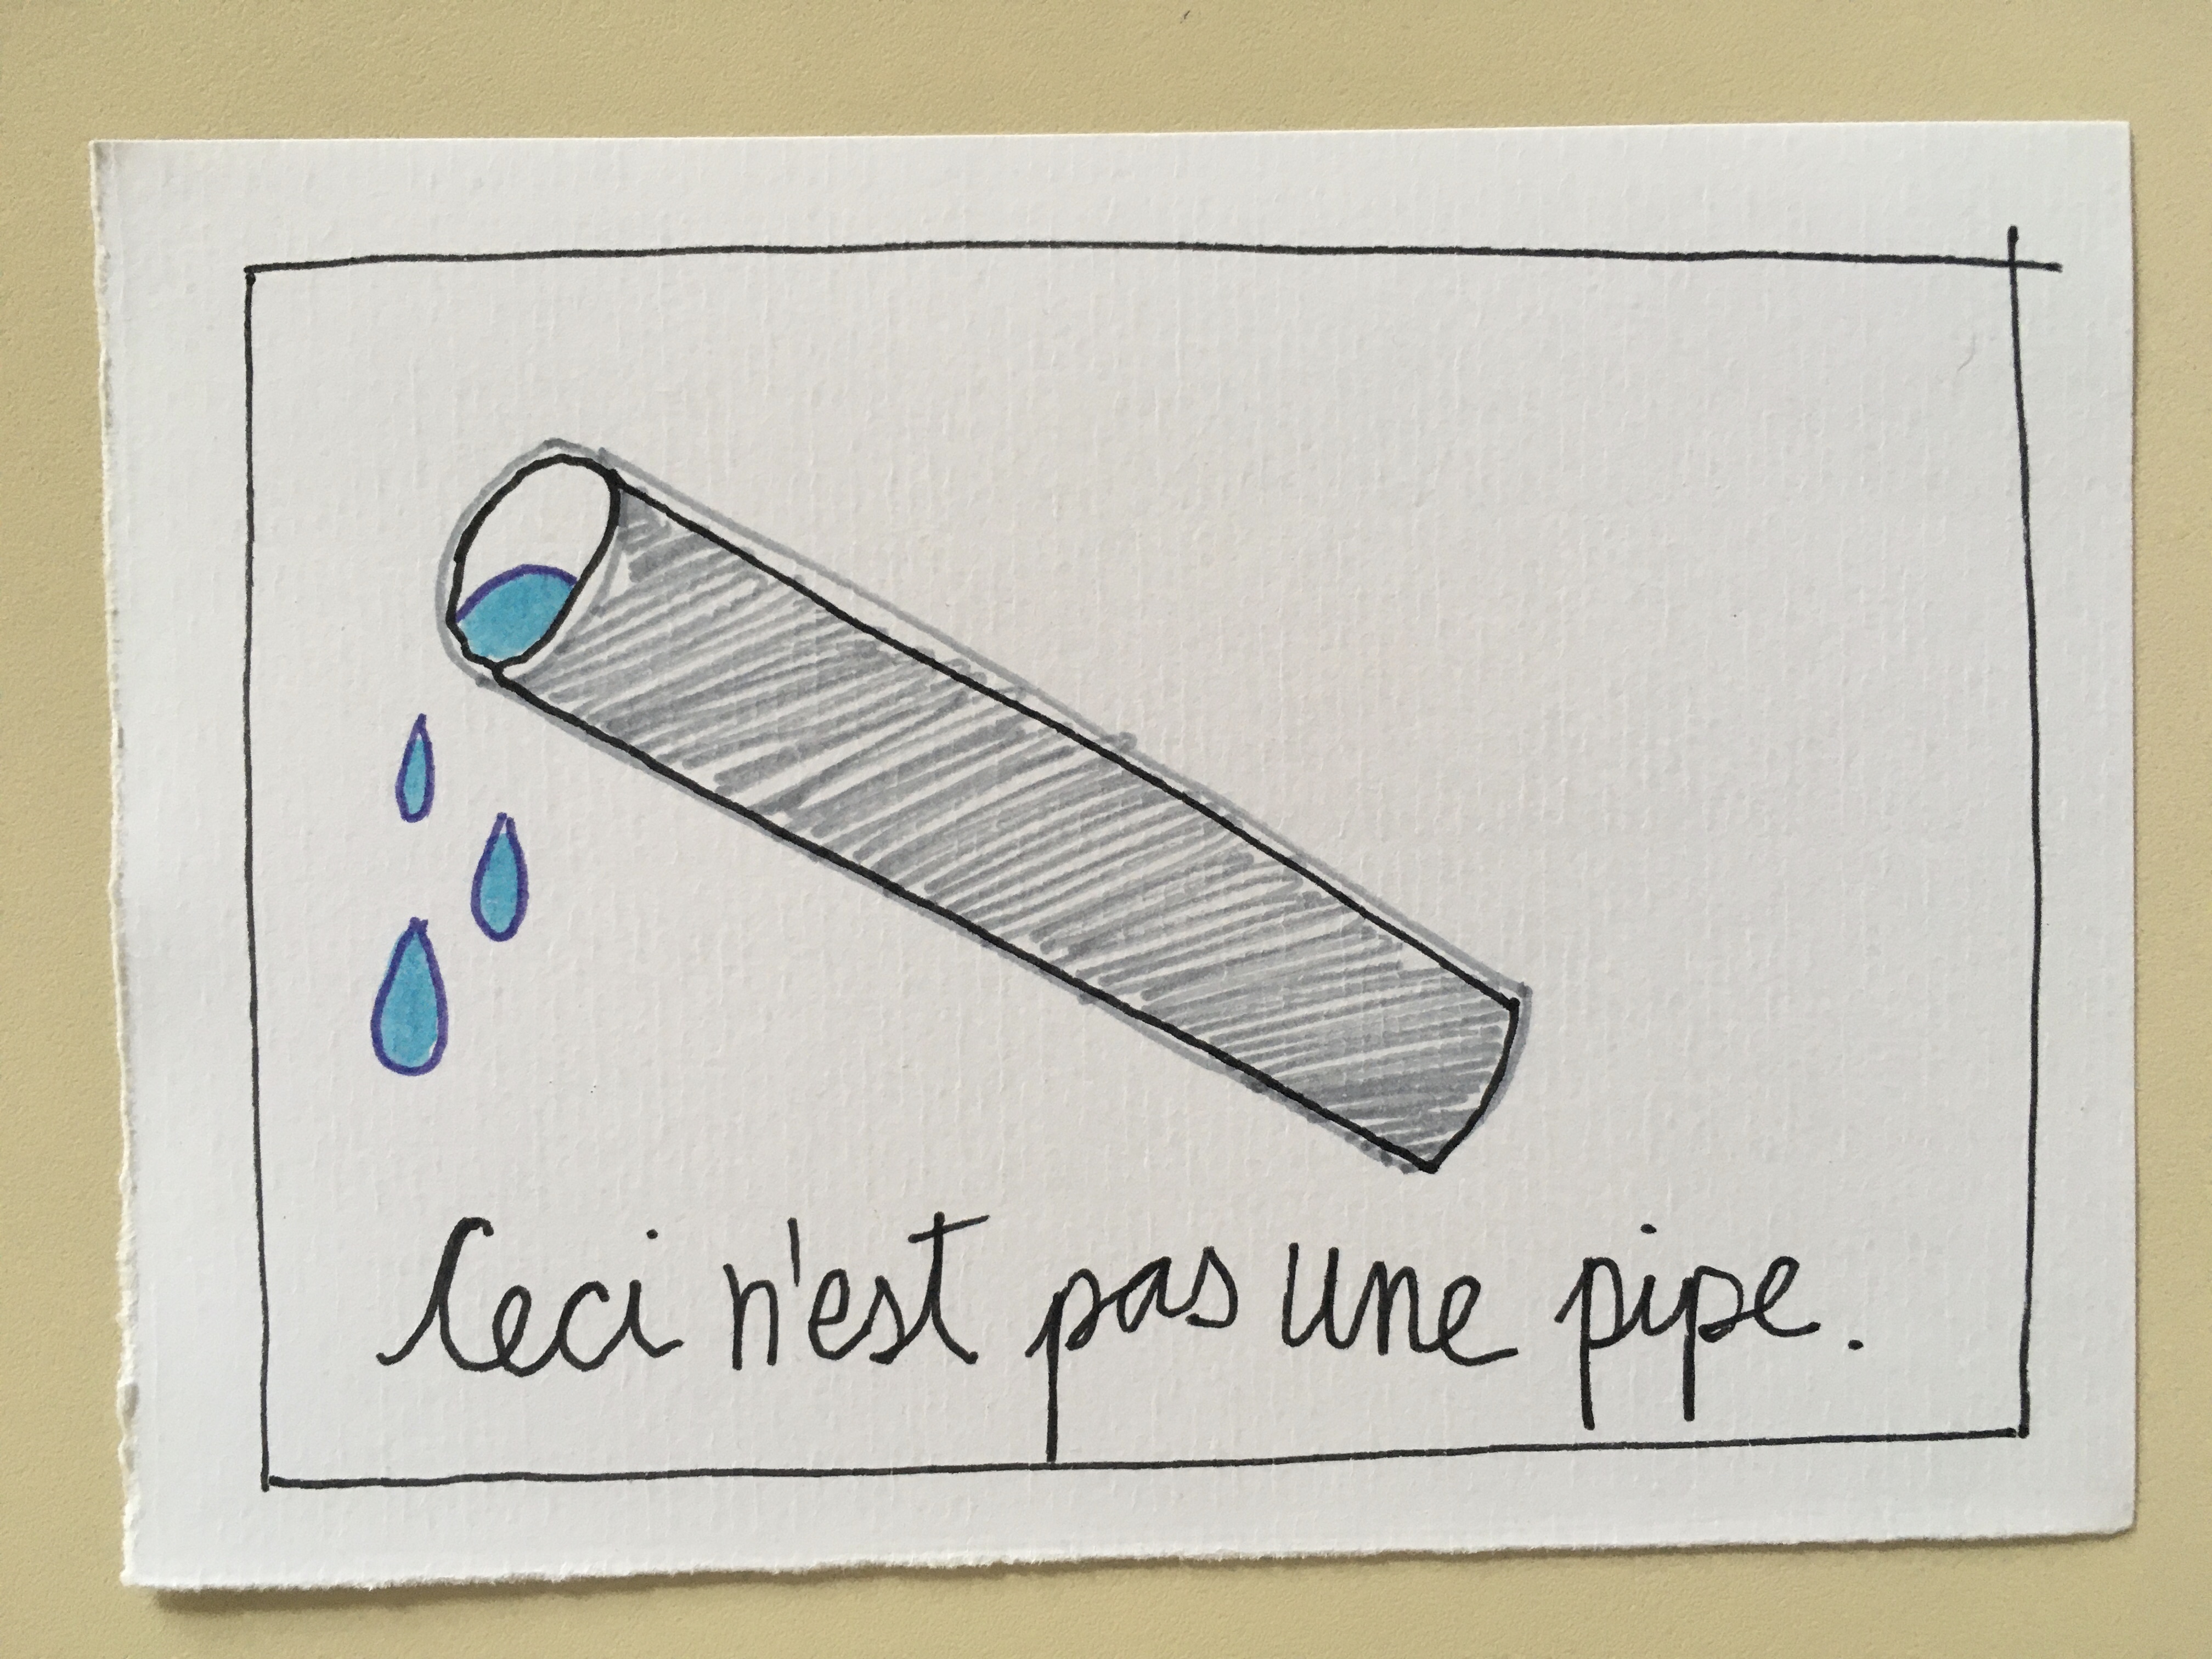 Ceci n'est pas une pipe.